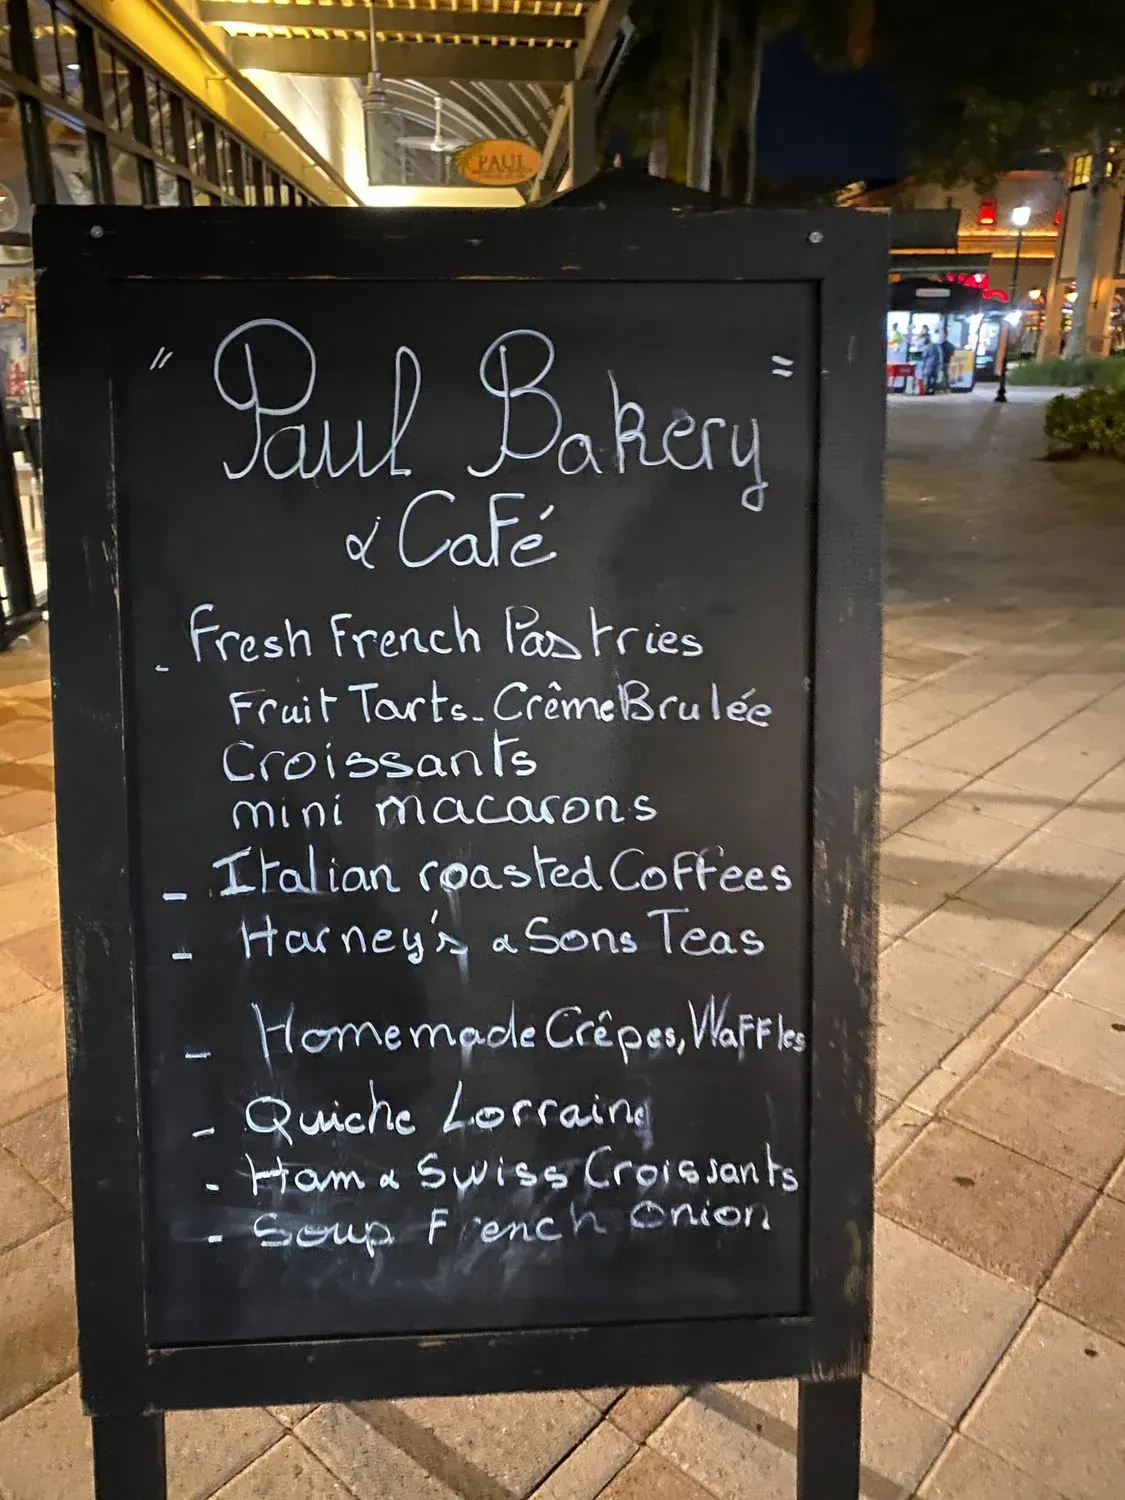 PAUL
" Paul Bakery "
& Café
- Fresh French Pastries
Fruit Tarts - Crême Brulée
Croissants
mini macarons
- Italian roasted Coffees
- Harney's & Sons Teas
- Homemade Crêpes, Waffles
- Quiche Lorraine
- Ham & Swiss Croissants
- Soup French Onion